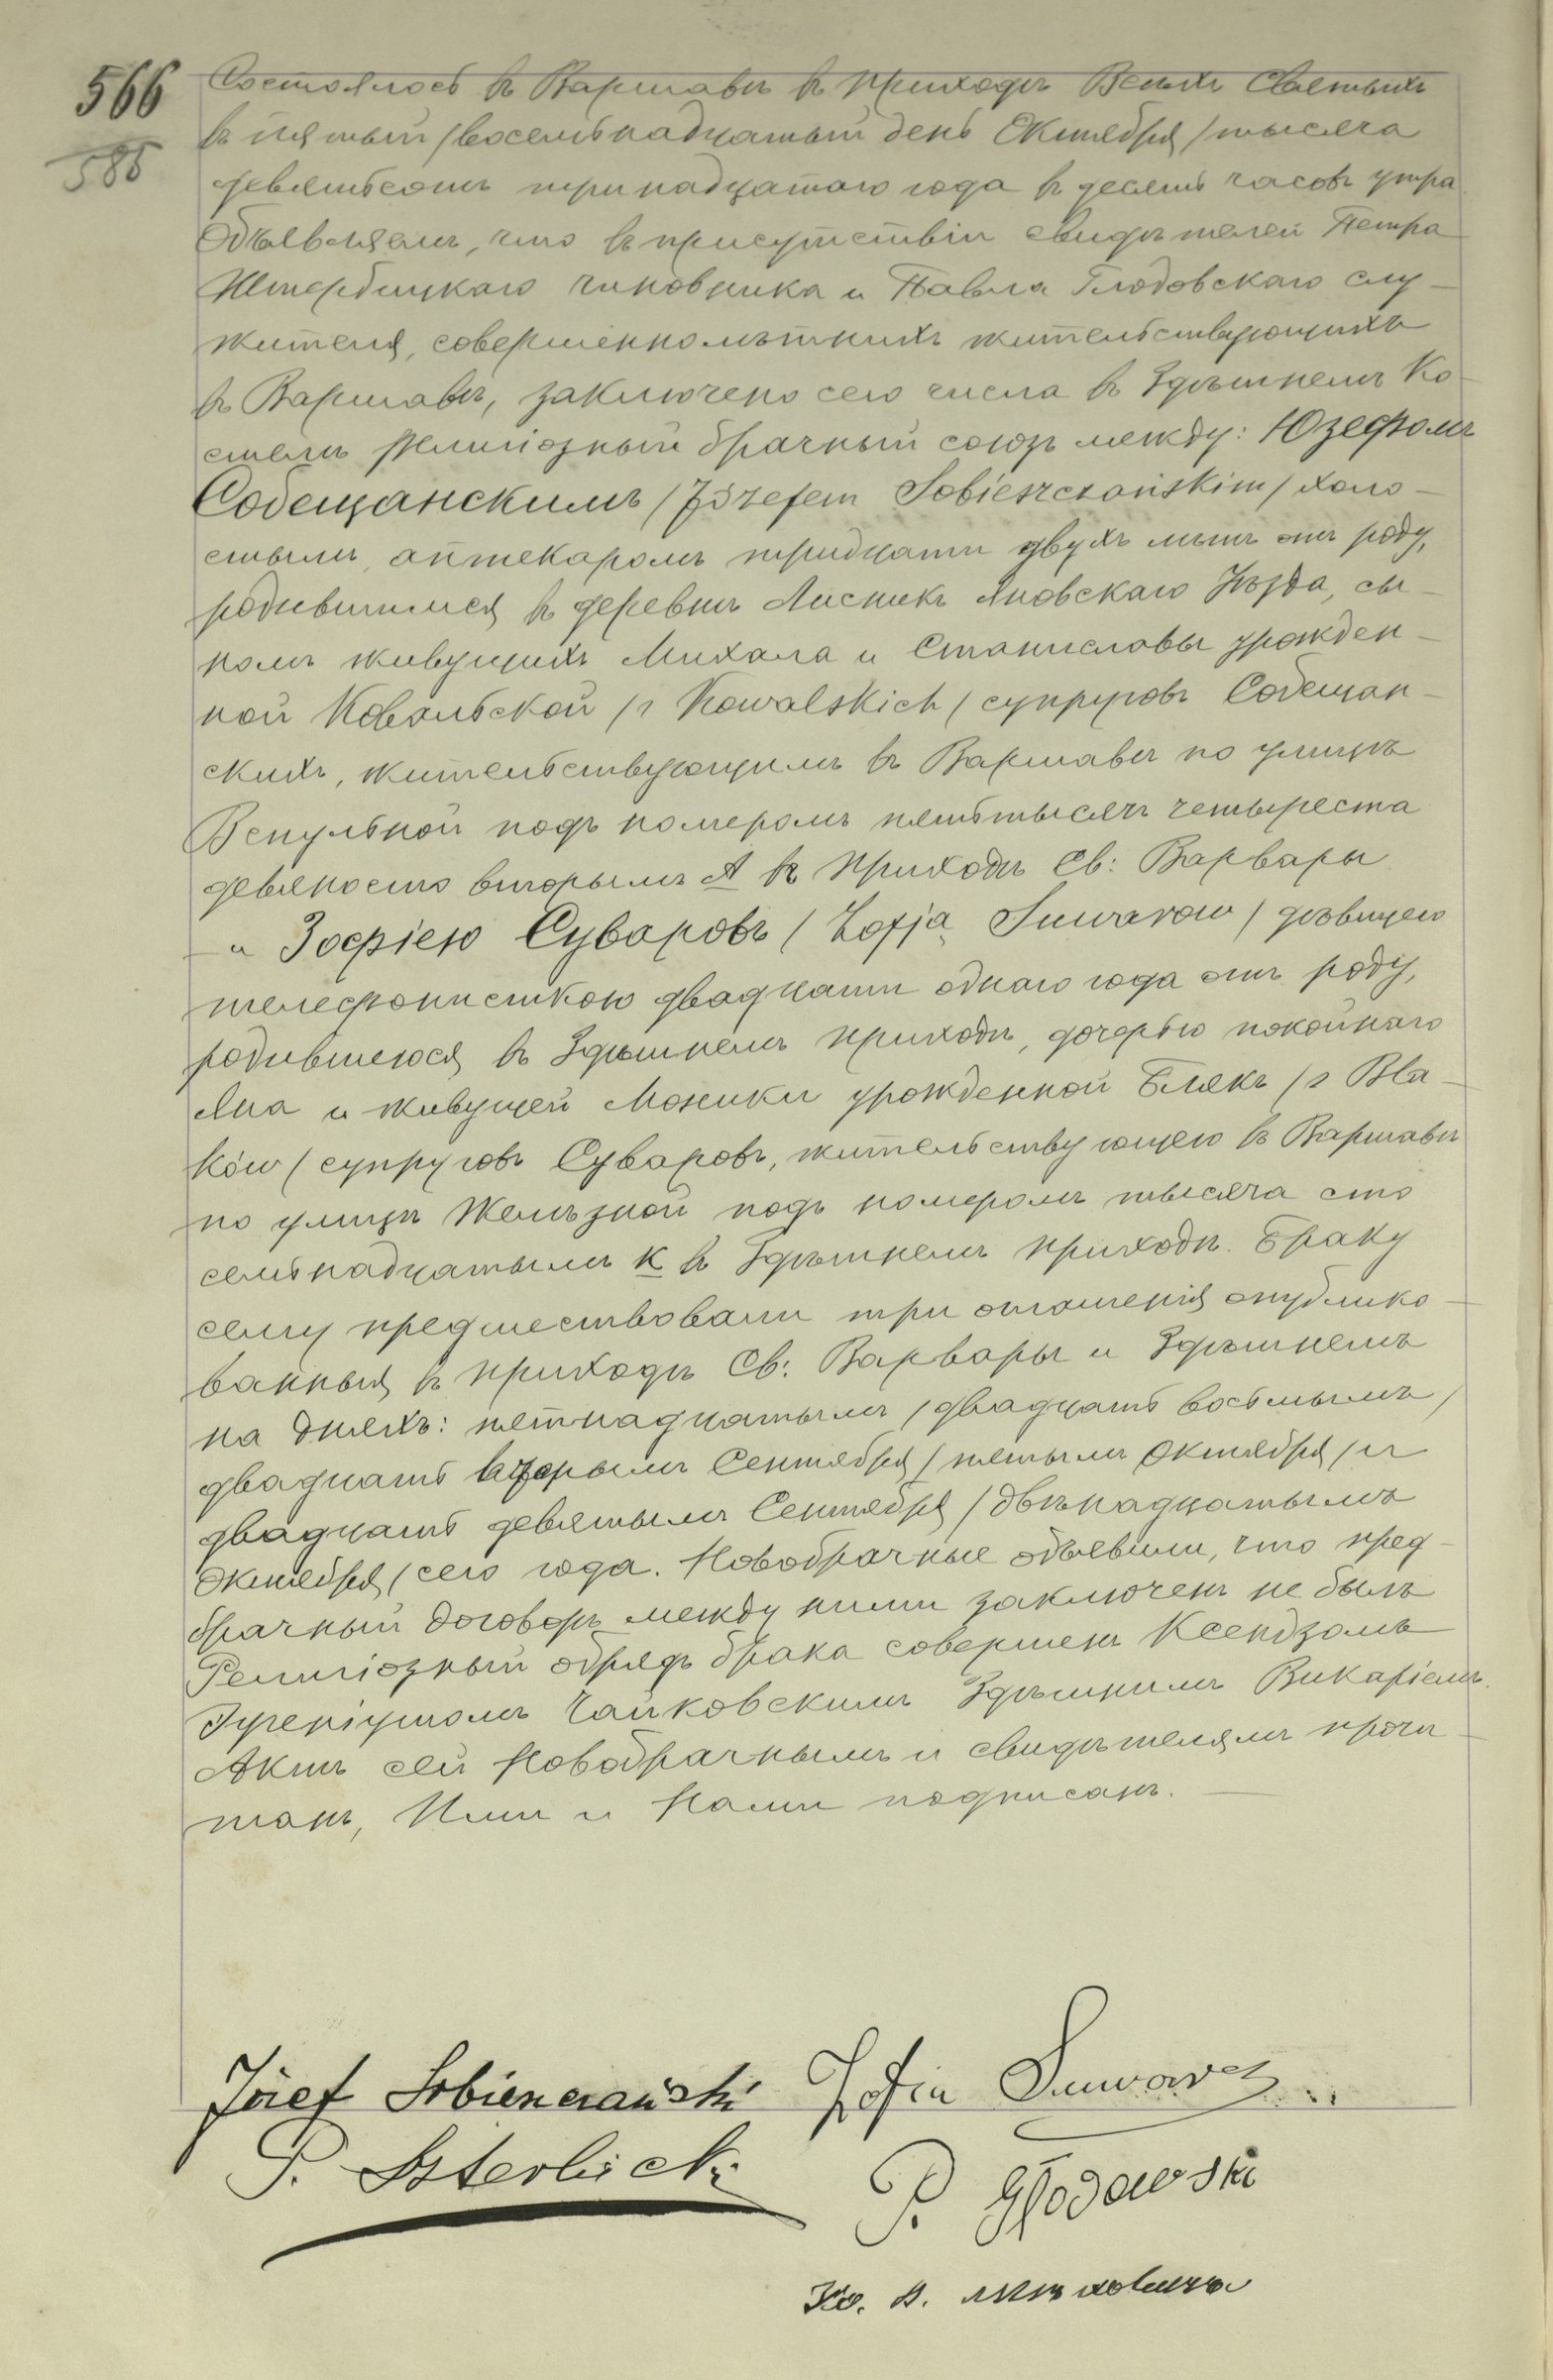 566
585
Состоялось въ Варшавѣ въ приходѣ Всѣхъ Святыхъ
въ пятый /восемьнадцатый день Октября/ тысяча
девятьсотъ тринадцатаго года въ десять часовъ утра
Объявляемъ, что въ присутствіи свидѣтелей Петра
Штербицкаго чиновника и Павла Глодовскаго слу-
жителя, совершеннолѣтнихъ жительствующихъ
въ Варшавѣ, заключено сего числа въ Здѣшнемъ Ко-
стелѣ религіозный брачный союзъ между: Юзефомъ
Собещанскимъ /Józefem Sobieszczańskim/ холо-
стымъ, аптекаромъ тридцати двухъ лѣтъ отъ роду,
родившимся въ деревнѣ Лисникъ Яновскаго Уѣзда, сы-
номъ живущихъ Михала и Станиславы урожден-
ной Ковальской /z Kowalskich/ супруговъ Собещан-
скихъ, жительствующимъ въ Варшавѣ по улицѣ
Вспульной подъ номеромъ пятьтысячъ четыреста
девяносто вторымъ А въ приходѣ Св: Варвары
— и Зофіею Суваровъ /Zofją Suwarow/ дѣвицею
телефонисткою двадцати однаго года отъ роду,
родившеюся въ Здѣшнемъ приходѣ, дочерью покойнаго
Яна и живущей Моники урожденной Блякъ /z Bla-
ków/ супруговъ Суваровъ, жительствующею въ Варшавѣ
по улицѣ Желѣзной подъ номеромъ тысяча сто
семьнадцатымъ К въ Здѣшнемъ приходѣ. Браку
сему предшествовали три оглашенія опублико-
ванныя въ приходѣ Св: Варвары и Здѣшнемъ
на дняхъ: пятнадцатымъ /двадцать восьмымъ/
двадцать вторымъ Сентября /пятымъ Октября/ и
двадцать девятымъ Сентября /двѣнадцатымъ
Октября/ сего года. Новобрачные объявили, что пред-
брачный договоръ между ними заключенъ не былъ
Религіозный обрядъ брака совершенъ Ксендзомъ
Чайковскимъ Здѣшнимъ Викаріемъ.
Актъ сей Новобрачнымъ и свидѣтелямъ прочи-
танъ, Ими и Нами подписанъ. —
Józef Sobieszczański Zofia Suwarow
P. Szterbicki
P. Głodowski